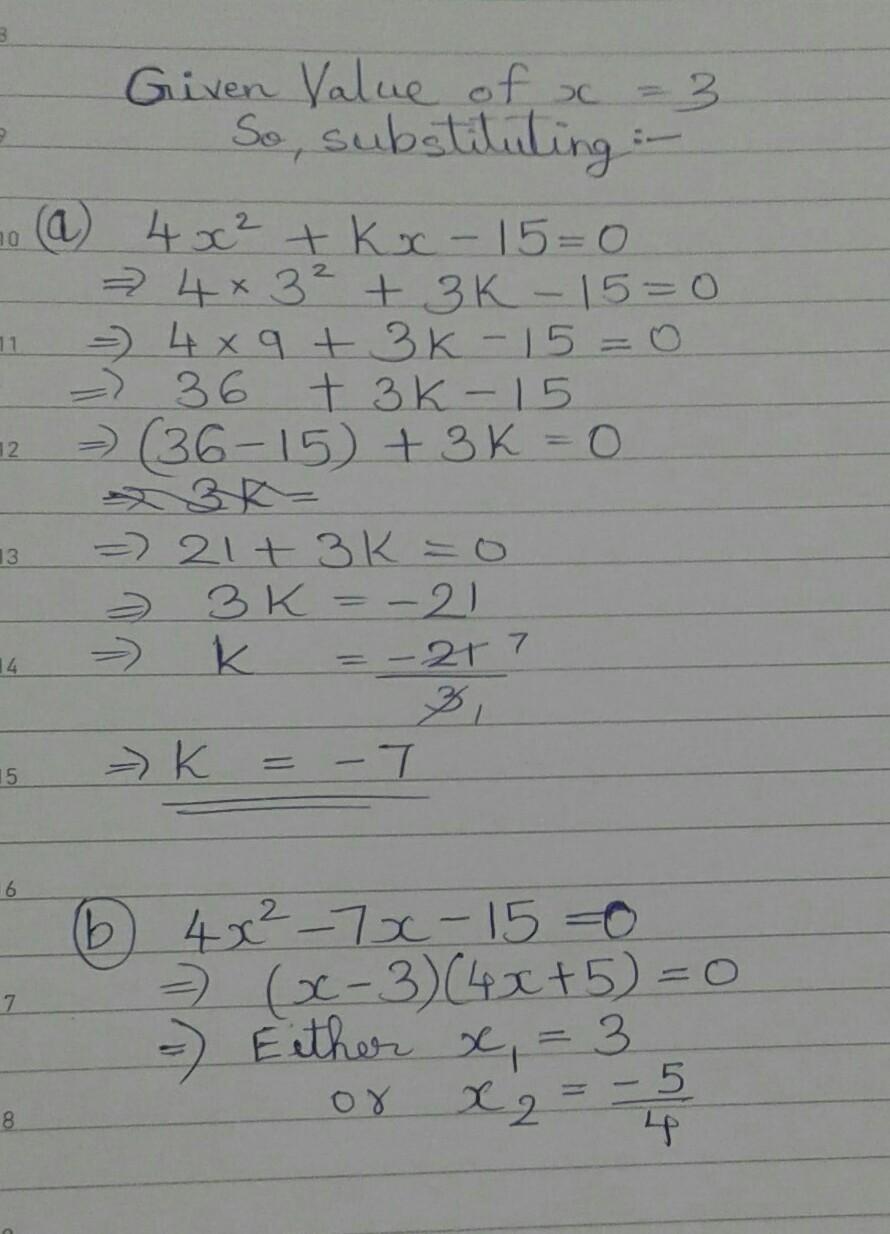 8
Given Value of x = 3
9
So, substituting :-
10 (a) 4x² + Kx - 15 = 0
⇒ 4 × 3² + 3K - 15 = 0
11 ⇒ 4 × 9 + 3K - 15 = 0
⇒ 36 + 3K - 15
12 ⇒ (36 - 15) + 3K = 0
⇒ 3K =
13 ⇒ 21 + 3K = 0
⇒ 3K = -21
14 ⇒ K = -21 7
3 1
15 ⇒ K = -7
16
(b) 4x² - 7x - 15 = 0
17 ⇒ (x - 3)(4x + 5) = 0
⇒ Either x₁ = 3
18 or x₂ = -5
4